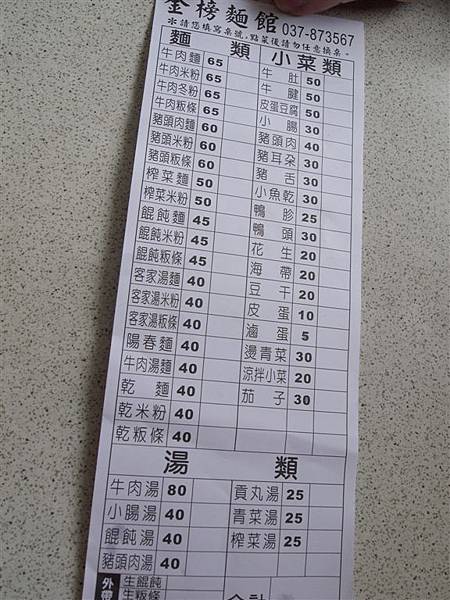 金榜麵館 037-873567
＊請您填寫桌號,點菜後請勿任意換桌。
麵類 小菜類
牛肉麵 65 牛肚 50
牛肉米粉 65 牛腱 50
牛肉冬粉 65 皮蛋豆腐 50
牛肉粄條 65 小腸 30
豬頭肉麵 60 豬頭肉 40
豬頭米粉 60 豬耳朵 30
豬頭粄條 60 豬舌 30
榨菜麵 50 小魚乾 30
榨菜米粉 50 鴨胗 25
餛飩麵 45 鴨頭 30
餛飩米粉 45 花生 20
餛飩粄條 45 海帶 20
客家湯麵 40 豆干 20
客家湯米粉 40 皮蛋 10
客家湯粄條 40 滷蛋 5
陽春麵 40 燙青菜 30
牛肉湯麵 40 涼拌小菜 20
乾麵 40 茄子 30
乾米粉 40
乾粄條 40
湯類
牛肉湯 80 貢丸湯 25
小腸湯 40 青菜湯 25
餛飩湯 40 榨菜湯 25
豬頭肉湯 40
外帶 生餛飩
生粄條 合計